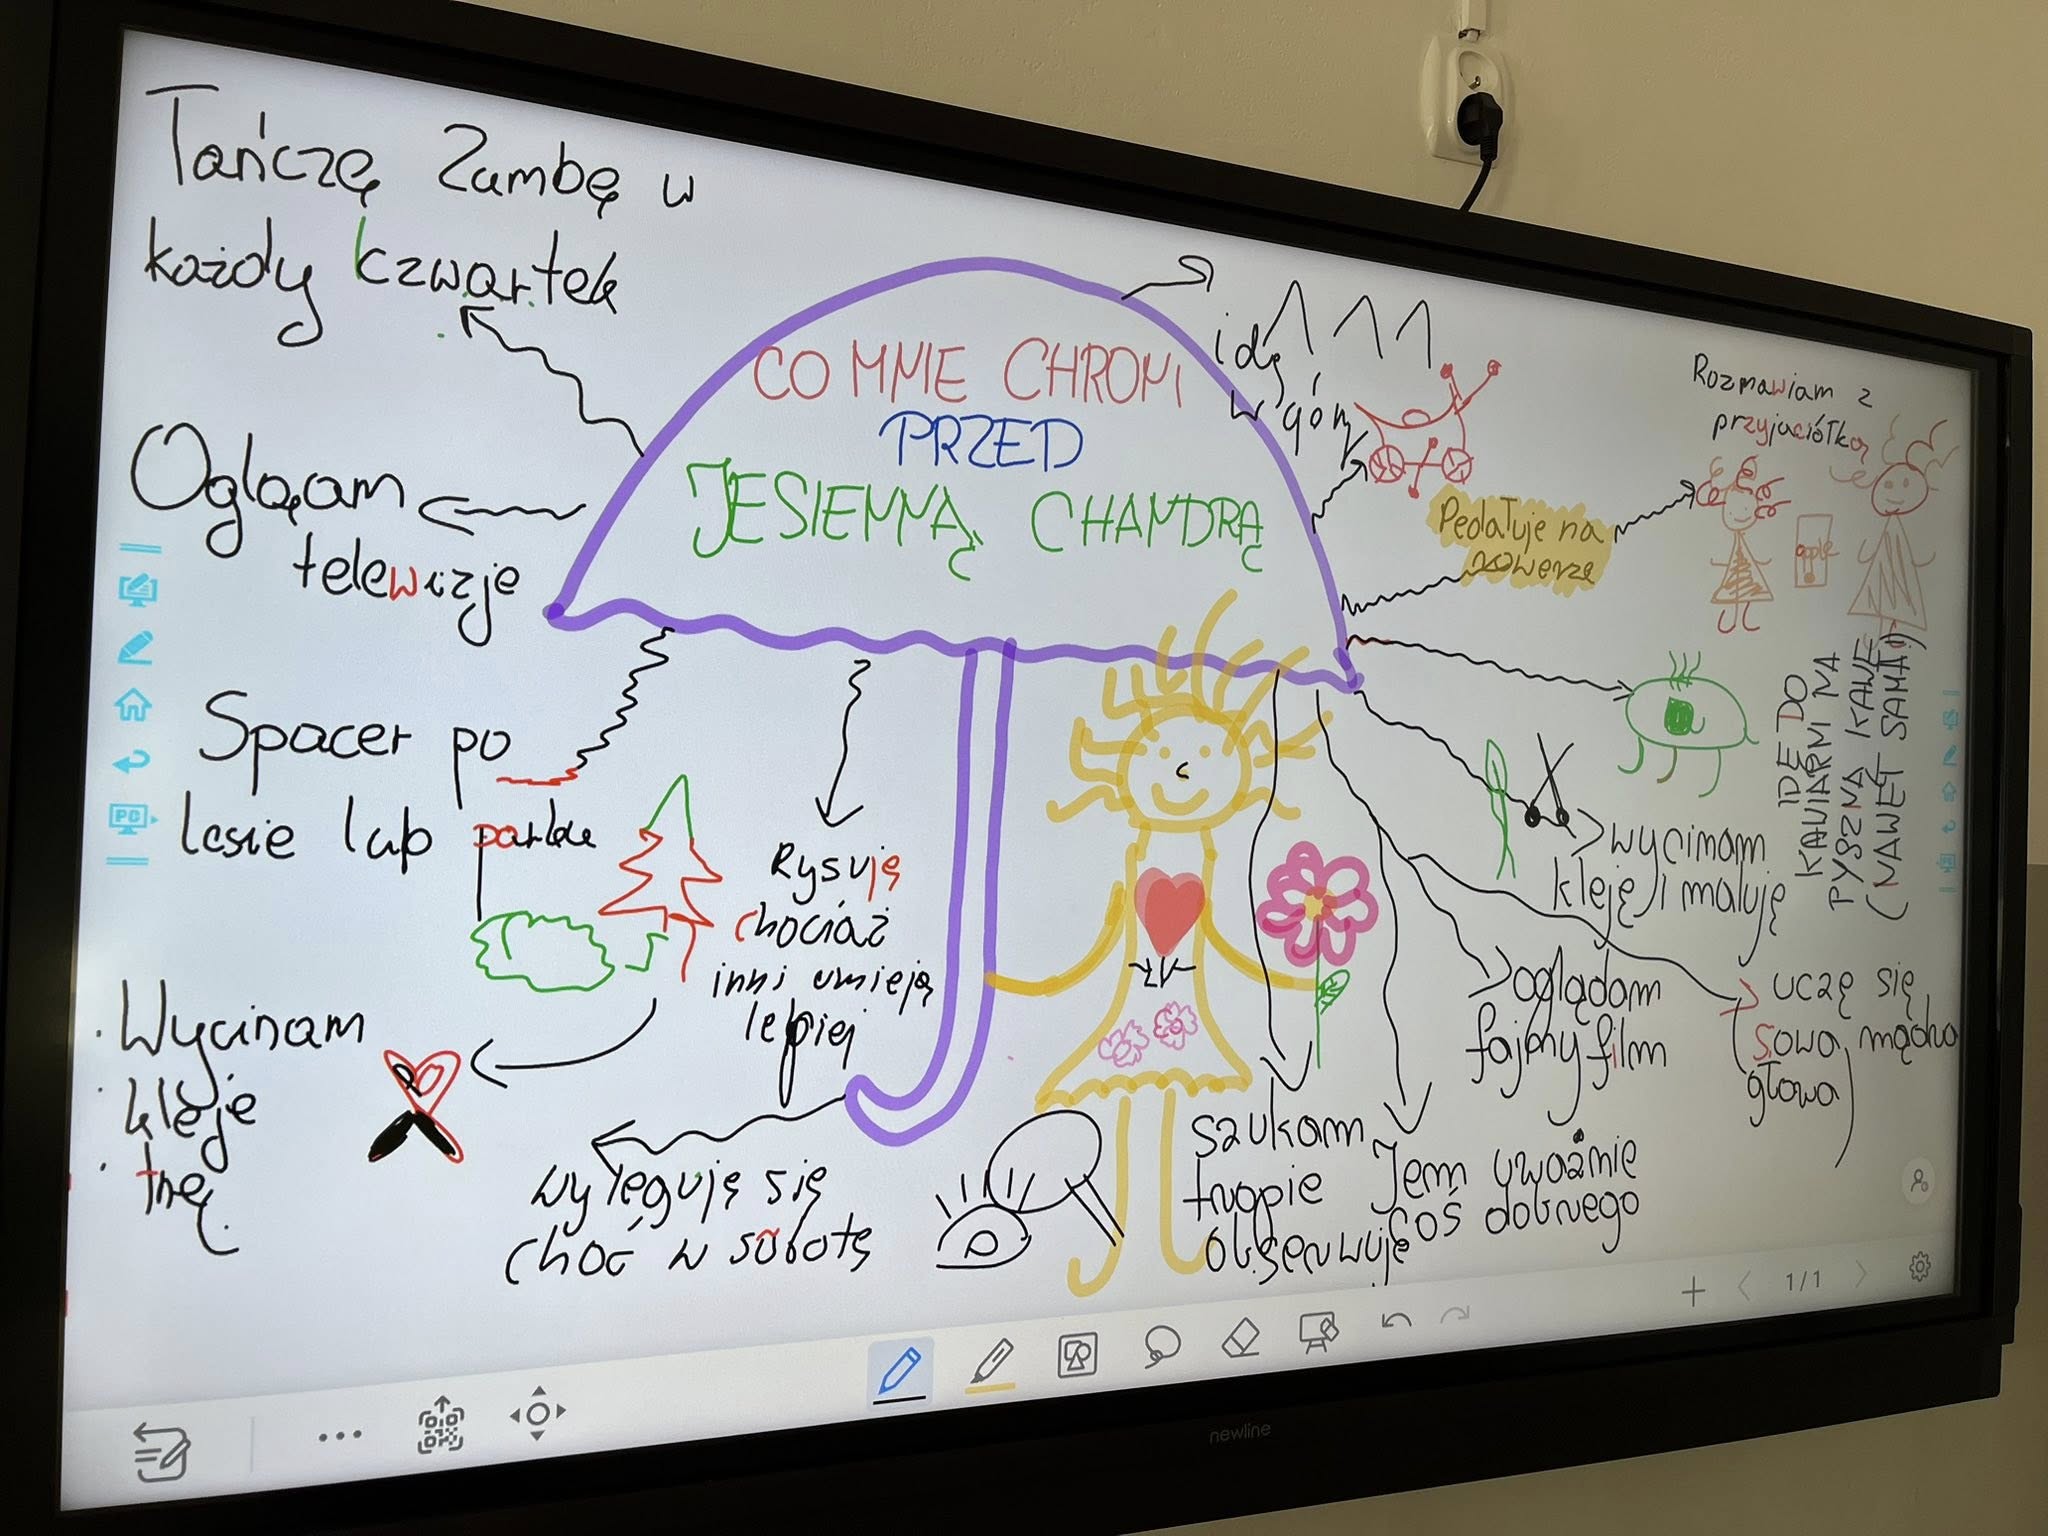 Tańczę Zumbę w
każdy czwartek
CO MNIE CHRONI
PRZED
JESIENNĄ CHANDRĄ
idę
w góry
Rozmawiam z
przyjaciółką
apple
Pedałuje na
rowerze
Oglącam
telewizje
Spacer po
lesie lub parku
Rysuję
chociaż
inni umieją
lepiej
Wycinam
kleje
tnę
wyleguję się
choć w sobotę
szukam
tropie
obserwuję
Jem uważnie
coś dobrego
oglądam
fajny film
uczę się
sowa, mądra
głowa
wycinam
kleję i maluję
IDĘ DO
KAWIARNI NA
PYSZNĄ KAWĘ
(NAWET SAMA!)
PC
PC
1/1
newline